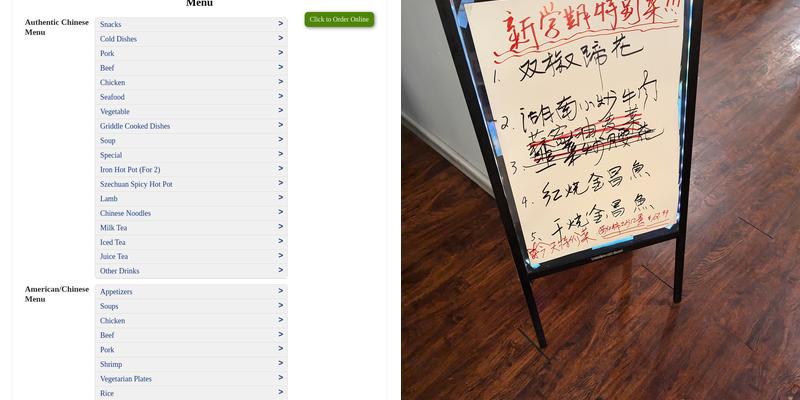 Menu
Authentic Chinese
Menu
Snacks >
Cold Dishes >
Pork >
Beef >
Chicken >
Seafood >
Vegetable >
Griddle Cooked Dishes >
Soup >
Special >
Iron Hot Pot (For 2) >
Szechuan Spicy Hot Pot >
Lamb >
Chinese Noodles >
Milk Tea >
Iced Tea >
Juice Tea >
Other Drinks >
American/Chinese
Menu
Appetizers >
Soups >
Chicken >
Beef >
Pork >
Shrimp >
Vegetarian Plates >
Rice >
Click to Order Online
新学期特别菜!!!
1. 双椒蹄花
2. 湖南小炒牛肉
3.
4. 红烧金昌魚
5. 干烧金昌魚
今天特价菜